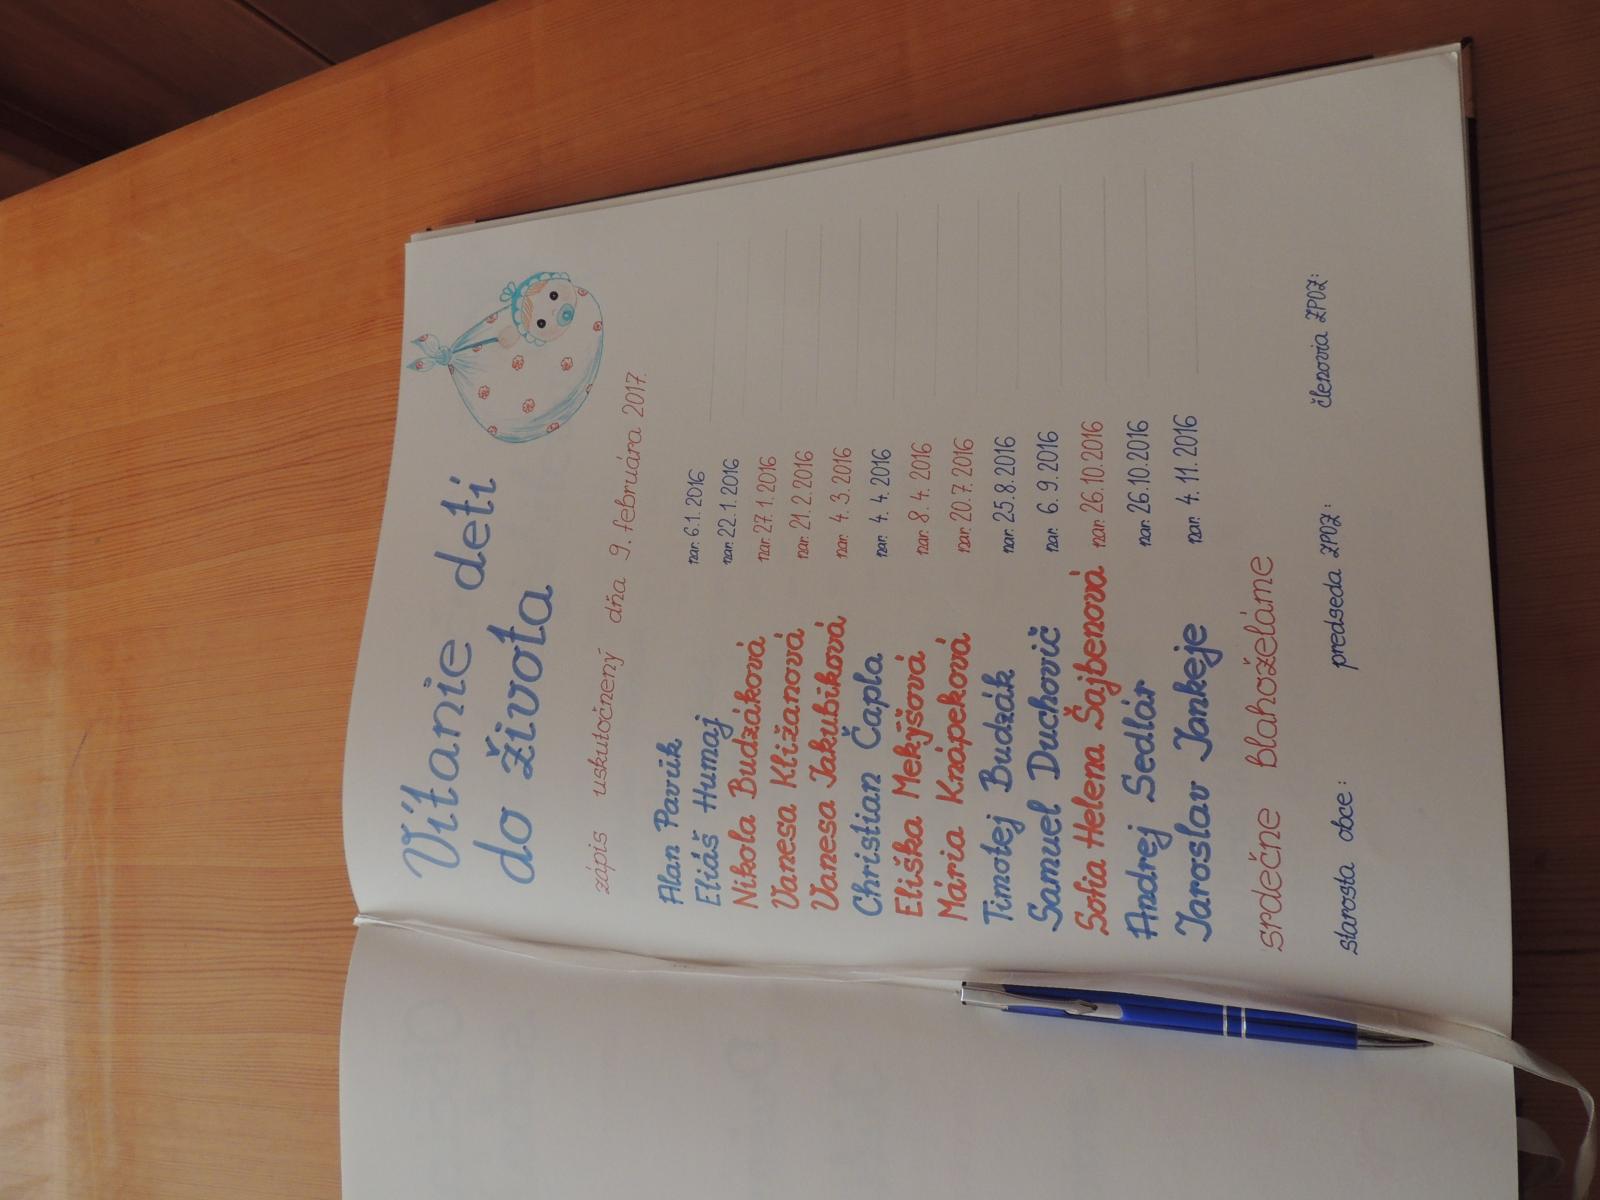 Vítanie detí
do života
zápis uskutočnený dňa 9. februára 2017.
Alan Pavrik nar. 6.1.2016
Eliáš Humaj nar. 22.1.2016
Nikola Budzáková nar. 27.1.2016
Vanesa Kližanová nar. 21.2.2016
Vanesa Jakubiková nar. 4.3.2016
Christian Čapla nar. 4.4.2016
Eliška Mekýšová nar. 8.4.2016
Mária Knápeková nar. 20.7.2016
Timotej Budzák nar. 25.8.2016
Samuel Duchovič nar. 6.9.2016
Sofia Helena Šajbenová nar. 26.10.2016
Andrej Sedlár nar. 26.10.2016
Jaroslav Jankeje nar. 4.11.2016
srdečne blahoželáme
starosta obce: predseda ZPOZ: členovia ZPOZ: